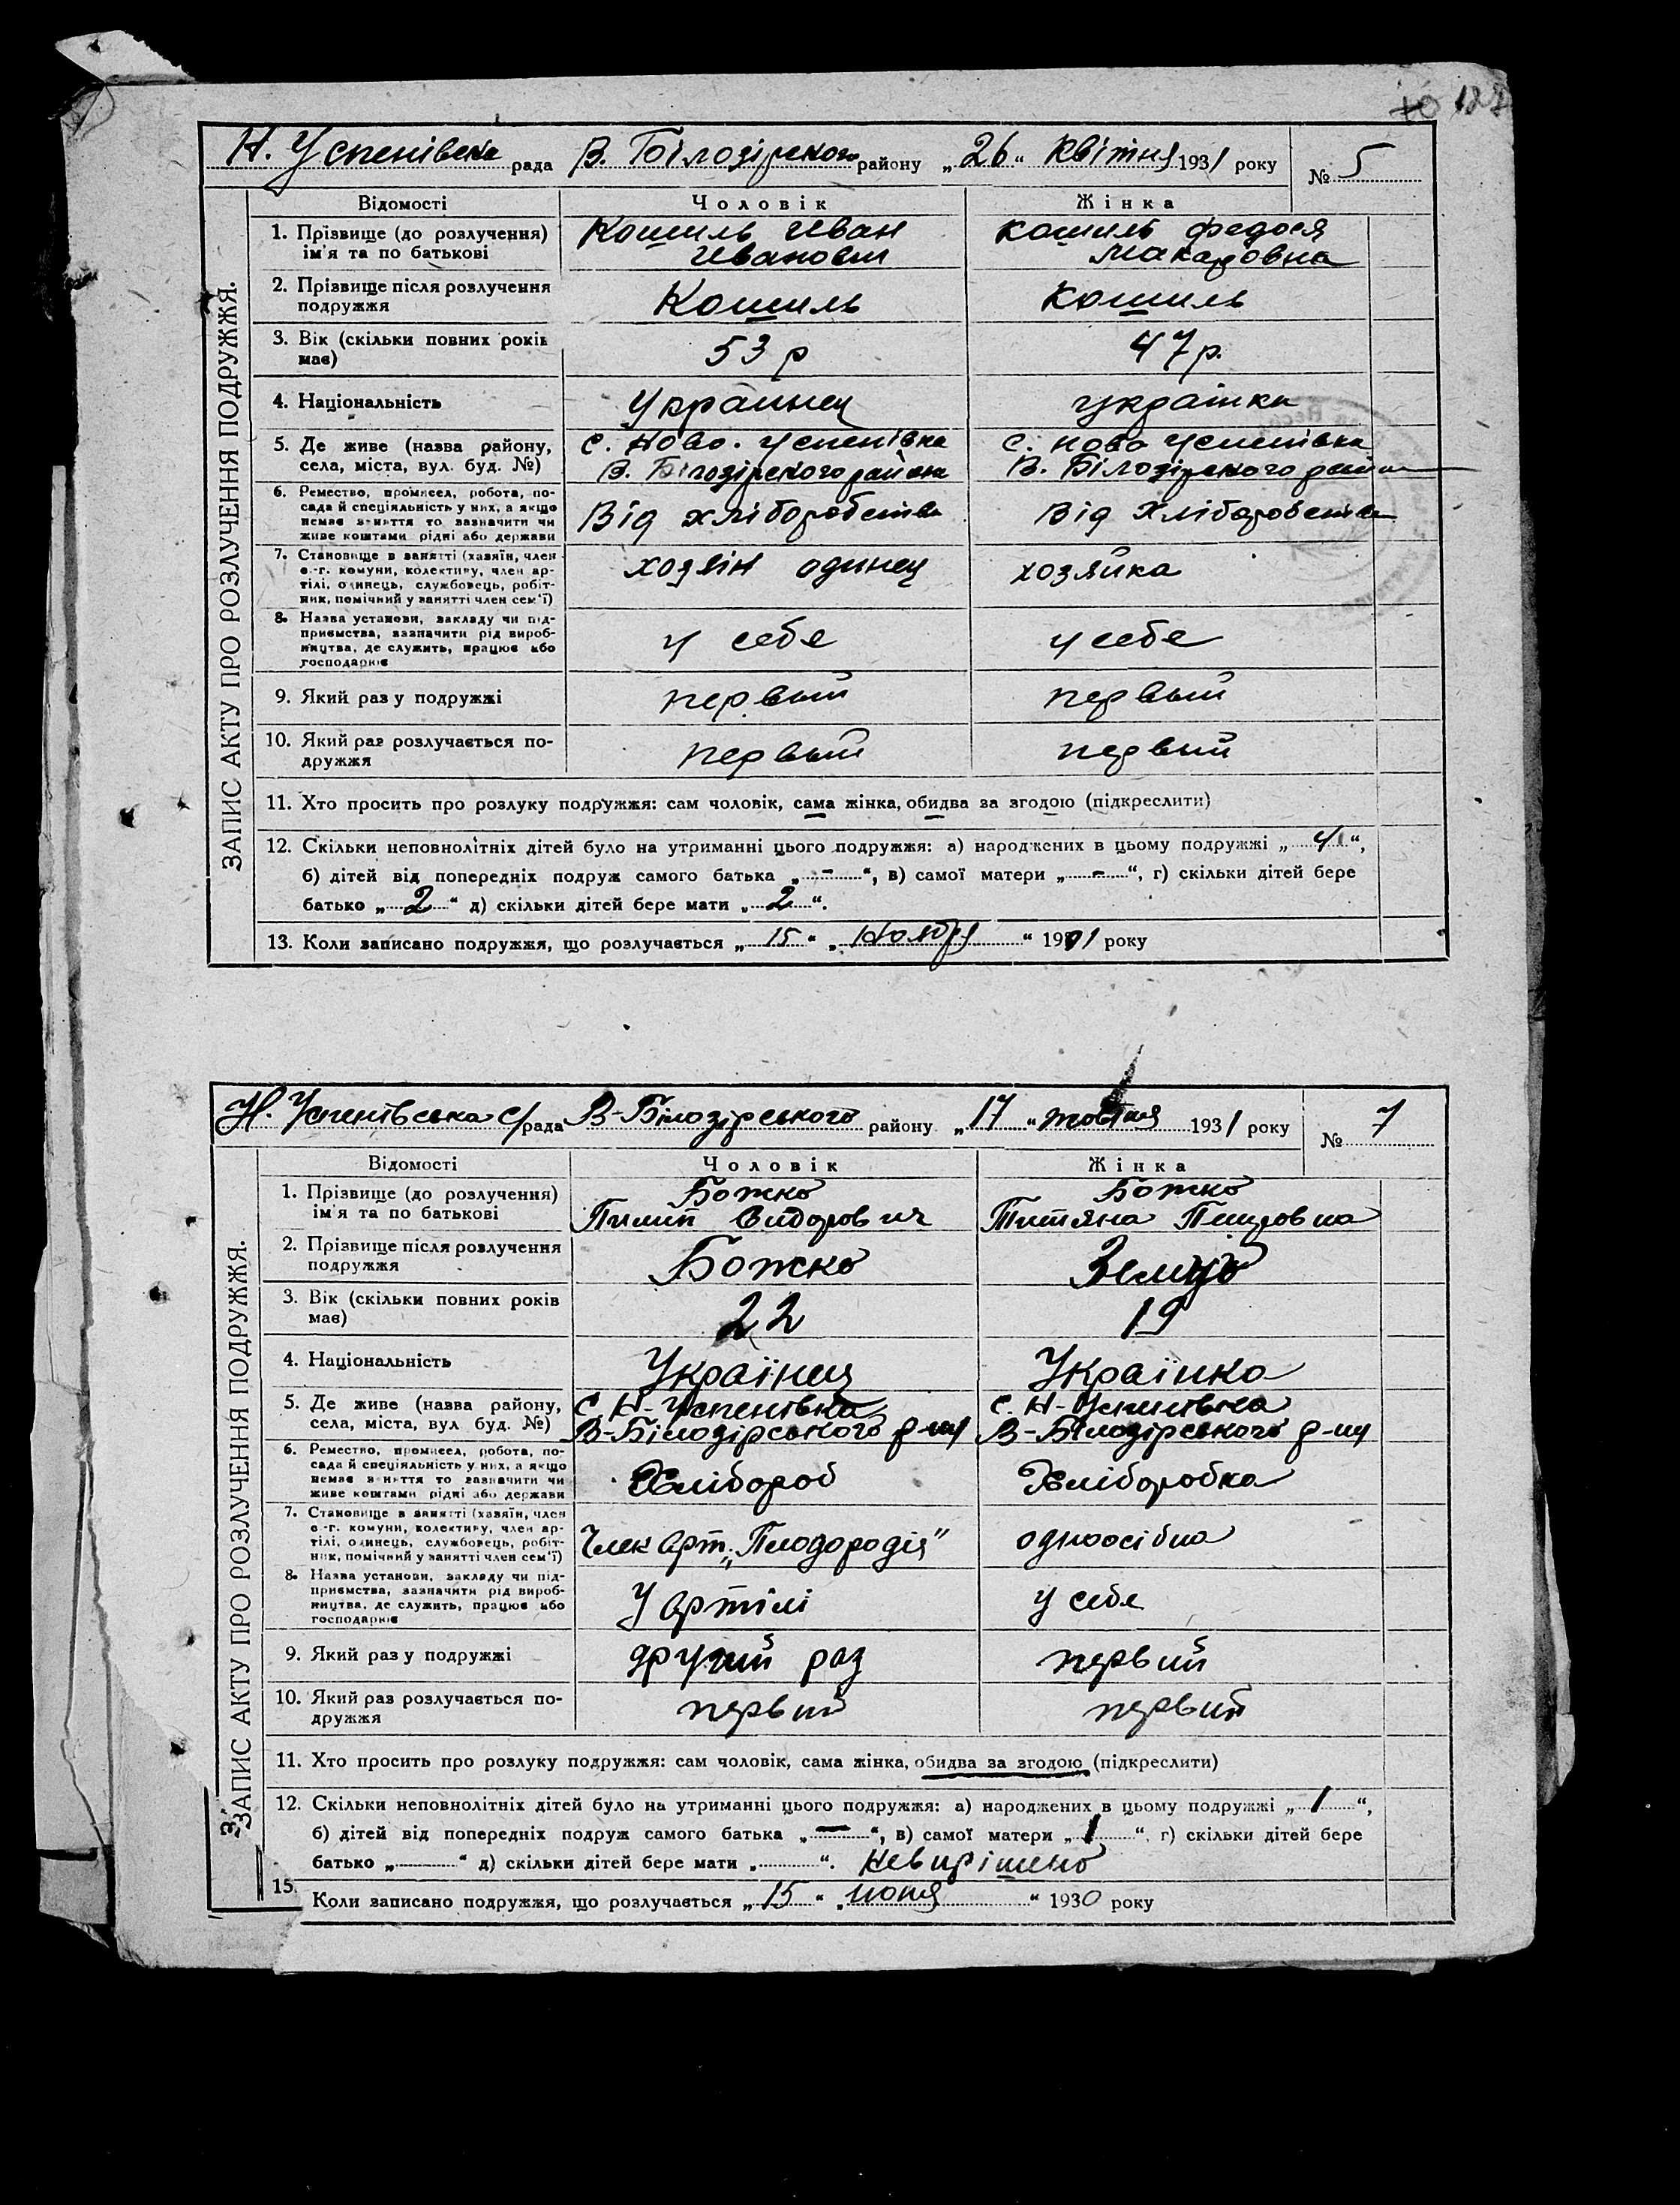 Н. Успенівска рада В. Білозірского району „26“ Квітня 1931 року № 5
ЗАПИС АКТУ ПРО РОЗЛУЧЕННЯ ПОДРУЖЖЯ.
Відомості Чоловік Жінка
1. Прізвище (до розлучення) ім'я та по батькові
Кошиль Иван
Иванович
Кошиль Федося
Макаровна
2. Прізвище після розлучення подружжя
Кошиль
Кошиль
3. Вік (скільки повних років має)
53 р
47 р.
4. Національність
Украинец
українка
5. Де живе (назва району,
села, міста, вул. буд. №)
с. Ново. Успенівка
В. Білозірского района
с. Ново Успенівка
В. Білозірского
6. Ремество, промисел, робота, по-
сада й спеціяльність у них, а якщо
немає заняття то зазначити чи
живе коштами рідні або держави
Від хліборобства
Від Хліборобства
7. Становище в занятті (хазяїн, член
с.-г. комуни, колективу, член ар-
тілі, одинець, службовець, робіт-
ник, помічний у занятті член сем'ї)
хозяін одинец
хозяйка
8. Назва установи, закладу чи під-
приємства, зазначити рід вироб-
ництва, де служить, працює або
господарює
у себе
у себе
9. Який раз у подружжі
первый
первый
10. Який раз розлучається по-
дружжя
первый
первый
11. Хто просить про розлуку подружжя: сам чоловік, сама жінка, обидва за згодою (підкреслити)
12. Скільки неповнолітніх дітей було на утриманні цього подружжя: а) народжених в цьому подружжі „4“,
б) дітей від попередніх подруж самого батька „-“, в) самої матери „-“, г) скільки дітей бере
батько „2“ д) скільки дітей бере мати „2“.
13. Коли записано подружжя, що розлучається „15“ „Ноября“ 1901 року
Н. Успенівська с/рада В-Білозірського району „17“ жовтня 1931 року № 7
ЗАПИС АКТУ ПРО РОЗЛУЧЕННЯ ПОДРУЖЖЯ.
Відомості Чоловік Жінка
1. Прізвище (до розлучення)
ім'я та по батькові
Божко
Пилип Сидорович
Божко
Титяна Петровна
2. Прізвище після розлучення
подружжя
Божко
3. Вік (скільки повних років
має)
22
19
4. Національність
Українец
Українка
5. Де живе (назва району,
села, міста, вул. буд. №)
с. Н-Успенівка
В-Білозірського р-ну
с. Н-Успенівка
В-Білозірського р-ну
6. Ремество, промисел, робота, по-
сада й спеціяльність у них, а якщо
немає заняття то зазначити чи
живе коштами рідні або держави
Хлібороб
Хліборобка
7. Становище в занятті (хазяїн, член
с.-г. комуни, колективу, член ар-
тілі, одинець, службовець, робіт-
ник, помічний у занятті член сем'ї)
Член арт. „Плодородія“
одноосібна
8. Назва установи, закладу чи під-
приємства, зазначити рід вироб-
ництва, де служить, працює або
господарює
У артілі
у себе
9. Який раз у подружжі
другий раз
первий
10. Який раз розлучається по-
дружжя
первий
первий
11. Хто просить про розлуку подружжя: сам чоловік, сама жінка, обидва за згодою (підкреслити)
12. Скільки неповнолітніх дітей було на утриманні цього подружжя: а) народжених в цьому подружжі „1“,
б) дітей від попередніх подруж самого батька „—“, в) самої матери „1“, г) скільки дітей бере
батько „“ д) скільки дітей бере мати „“. Невирішено
15. Коли записано подружжя, що розлучається „15“ „июня“ 1930 року